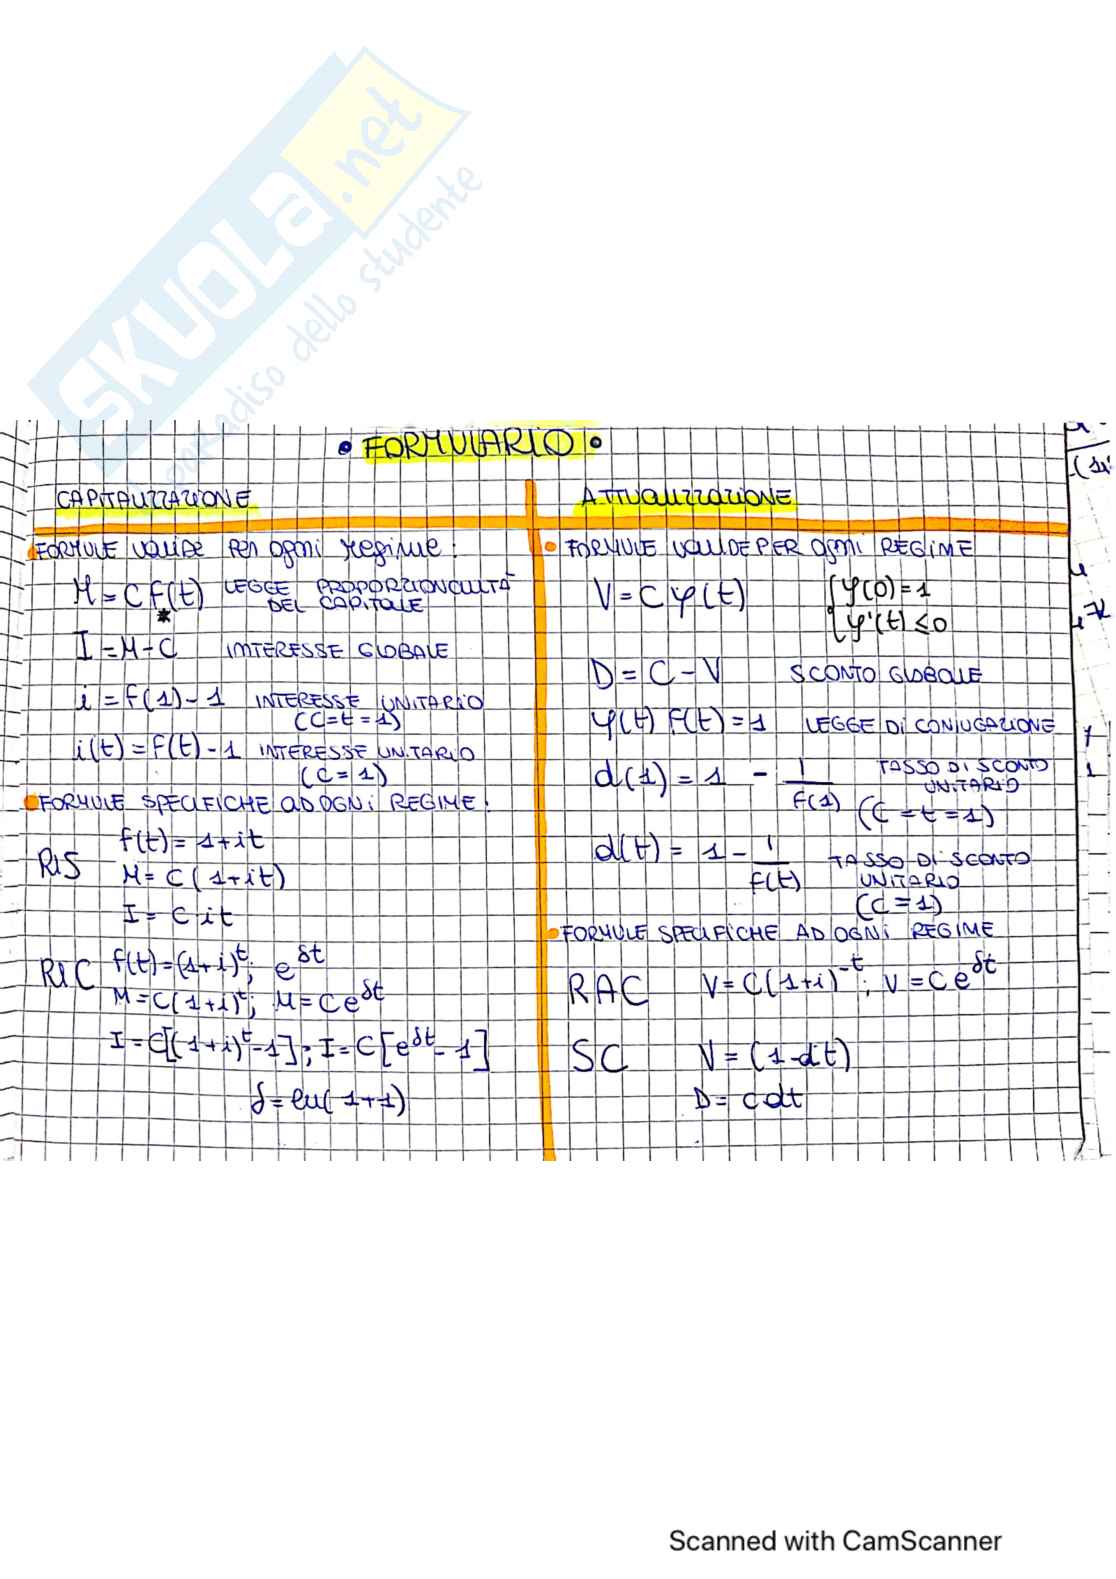 SKUOLA.net
paradiso dello studente
• FORMULARIO •
CAPITALIZZAZIONE
FORMULE VALIDE PER OGNI REGIME:
M=C F(t) LEGGE PROPORZIONALITÀ
DEL CAPITALE
*
I=M-C INTERESSE GLOBALE
i=F(1)-1 INTERESSE UNITARIO
(C=t=1)
i(t)=F(t)-1 INTERESSE UNITARIO
(C=1)
FORMULE SPECIFICHE AD OGNI REGIME:
RIS
f(t)=1+it
M=C(1+it)
I=Cit
RIC
f(t)=(1+i)^t; e^δt
M=C(1+i)^t; M=Ce^δt
I=C[(1+i)^t-1]; I=C[e^δt-1]
δ=ln(1+1)
ATTUALIZZAZIONE
• FORMULE VALIDE PER OGNI REGIME
V=Cφ(t) {φ(0)=1
φ'(t)≤0
D=C-V SCONTO GLOBALE
φ(t) F(t)=1 LEGGE DI CONJUGAZIONE
d(1)=1-1/f(1) TASSO DI SCONTO
UNITARIO
(C=t=1)
d(t)=1-1/f(t) TASSO DI SCONTO
UNITARIO
(C=1)
• FORMULE SPECIFICHE AD OGNI REGIME
RAC V=C(1+i)^-t; V=Ce^δt
SC V=(1-dt)
D=cdt
Scanned with CamScanner